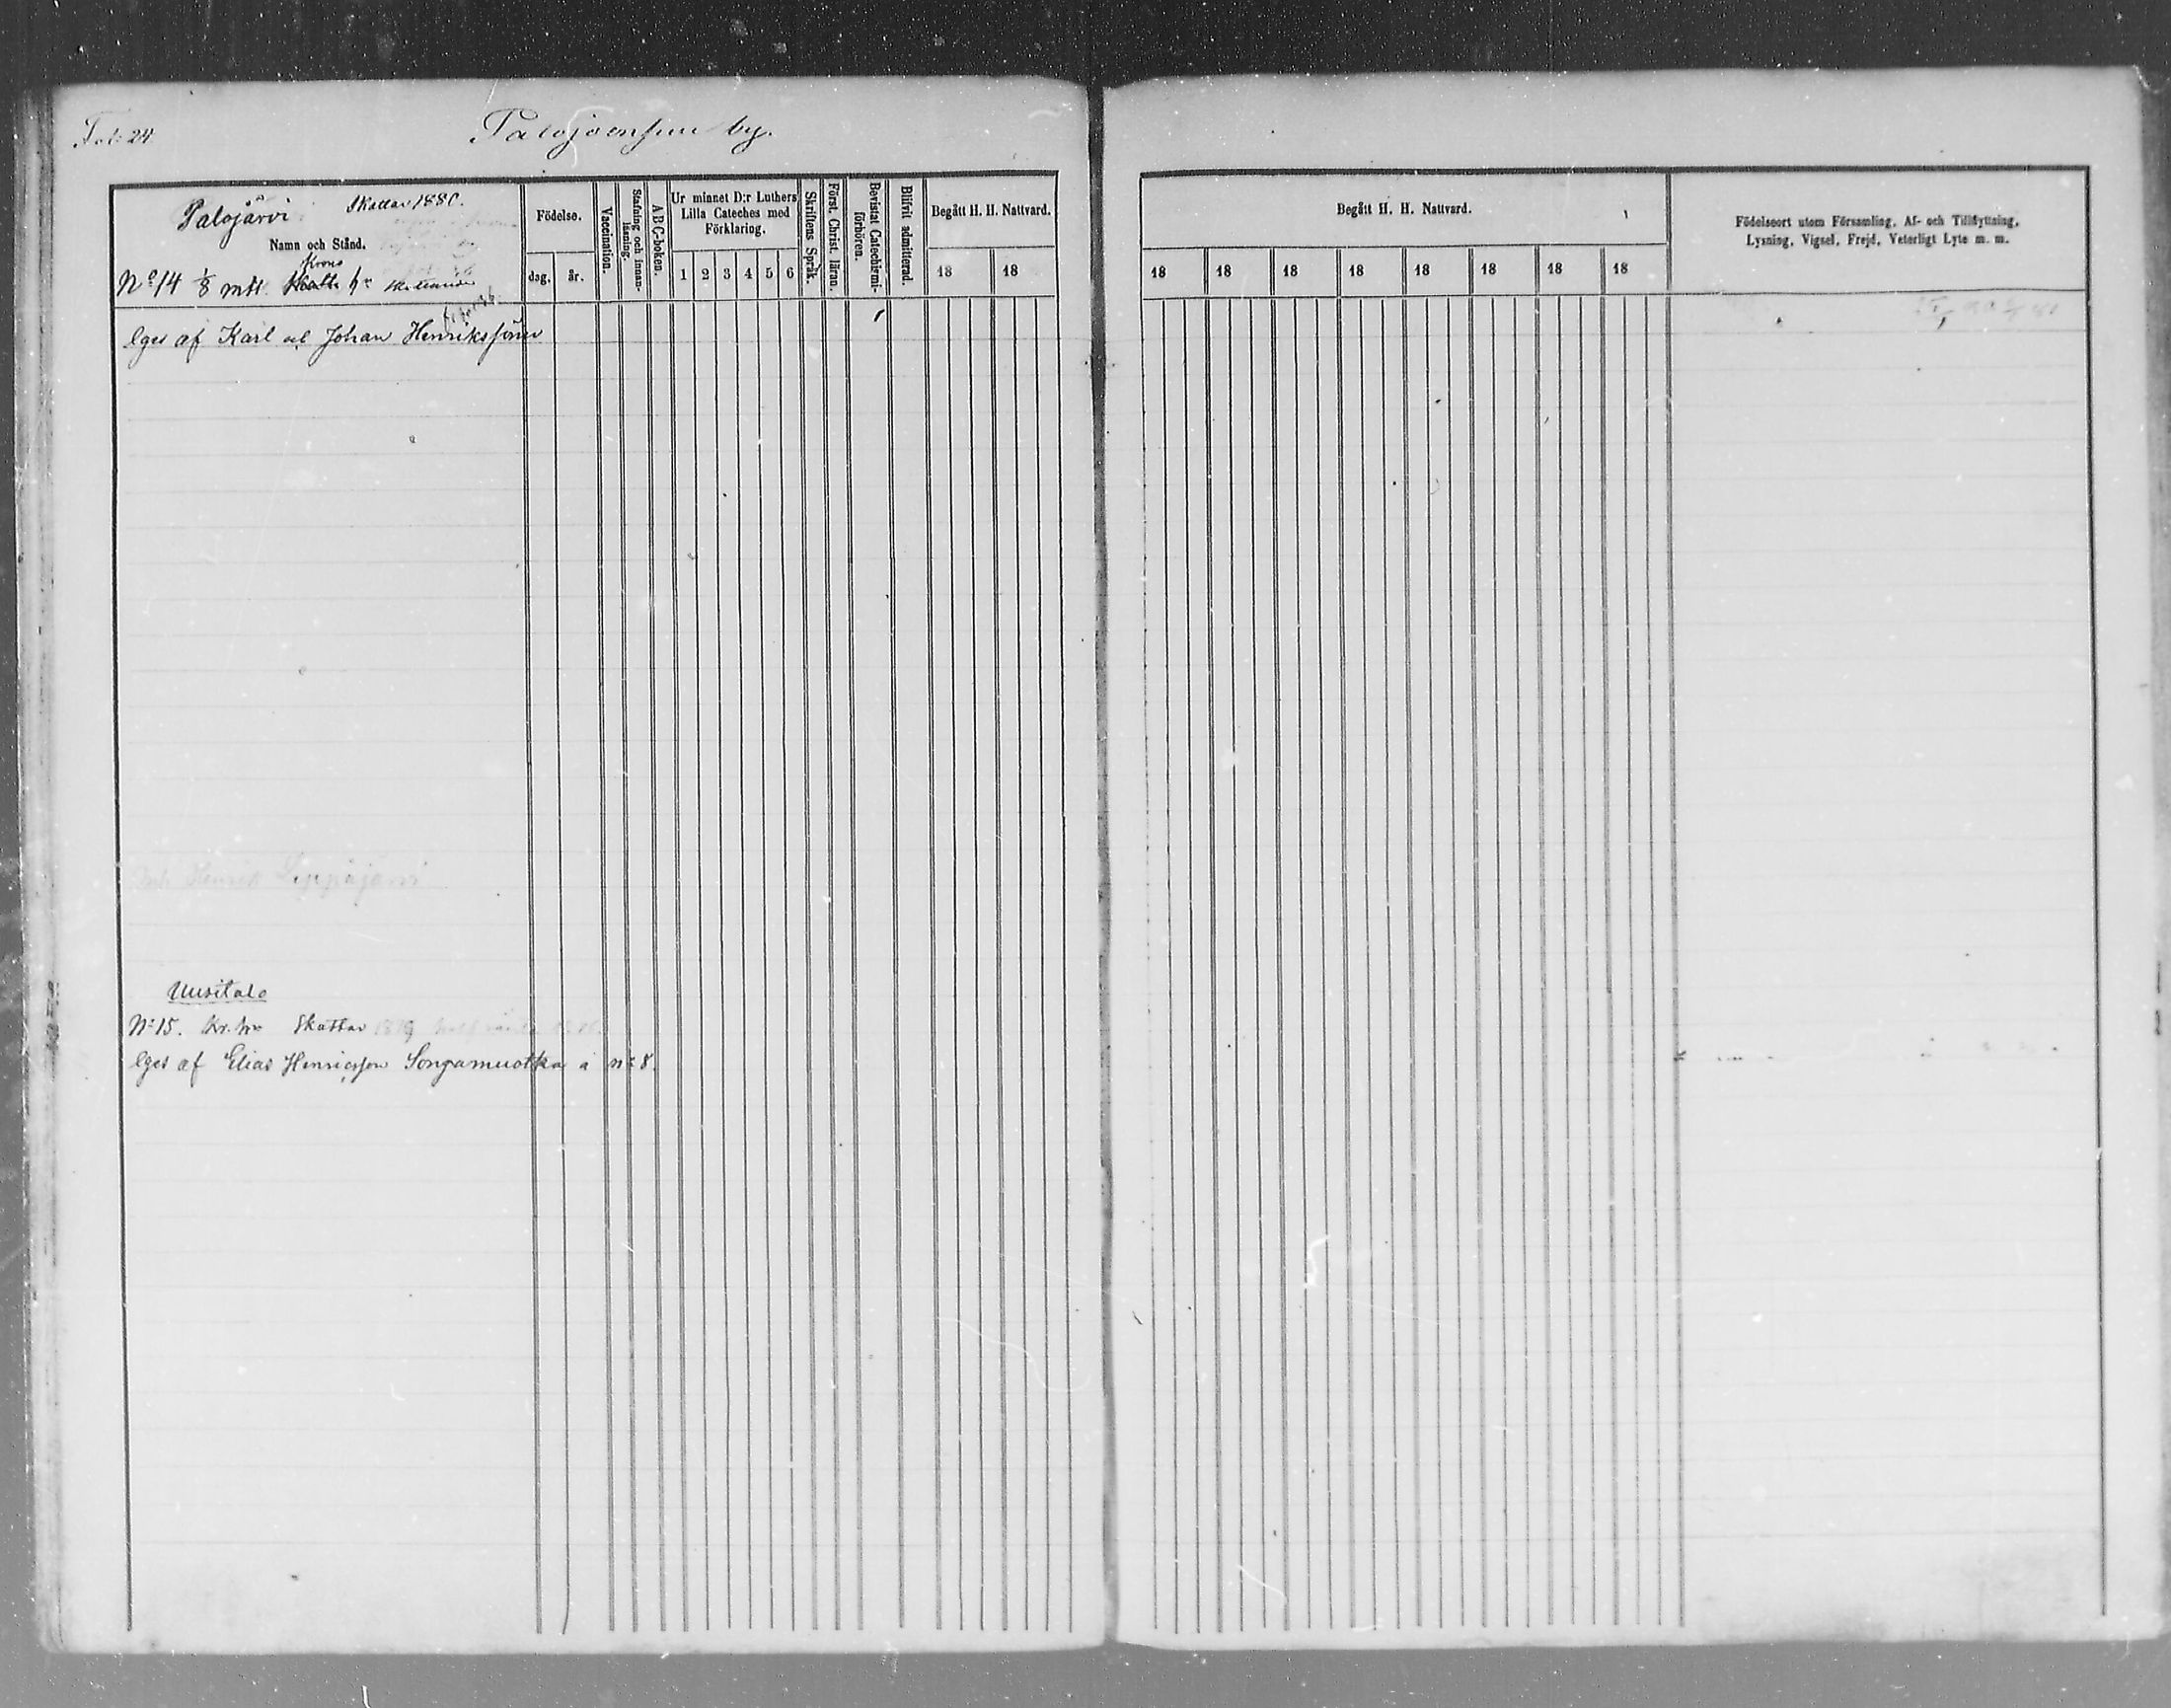 Fol: 24
Palojoensuu by.
Palojärvi Skattar 1880.
Namn och Stånd.
Krono
No 14 1/8 mtl. hn
Eges af Karl och Johan Henrikssöner
Födelse.
dag. år.
Vaccination.
Stafning och innanläsning.
A B C-boken.
Ur minnet D:r Luthers
Lilla Cateches med
Förklaring.
1 2 3 4 5 6
Skriftens Språk.
Först. Christ. läran.
Bevistat Catechismi-
förhören.
Blifvit admitterad.
Begått H. H. Nattvard.
18 18
Henrik Leppäjärvi
Uusitalo
No 15. Kr. hn Skattar
Eges af Elias Henricsson Songamuotka å no 8.
Begått H. H. Nattvard.
18 18 18 18 18 18 18 18
Födelseort utom Församling, Af- och Tillflyttning,
Lysning, Vigsel, Frejd, Veterligt Lyte m. m.